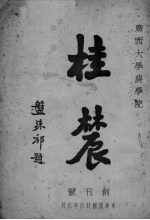 廣西大學農學院
桂農
盤珠祁題
創刊號